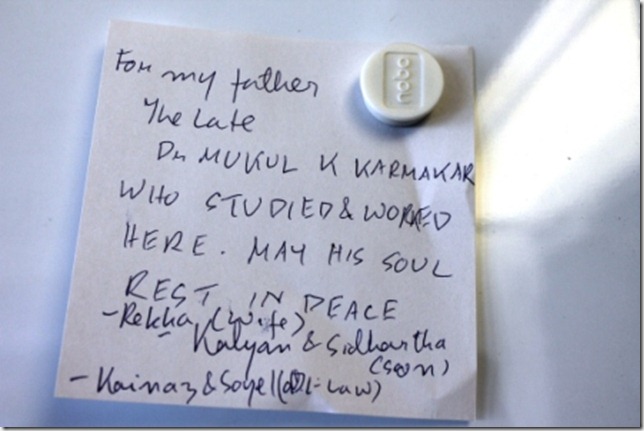 For my father
The Late
Dr MUKUL K KARMAKAR
WHO STUDIED & WORKED
HERE. MAY HIS SOUL
REST IN PEACE
- Rekha (wife)
Kalyan & Sidhartha
(son)
- Kainaz & Soyel ( -Law)
nobo